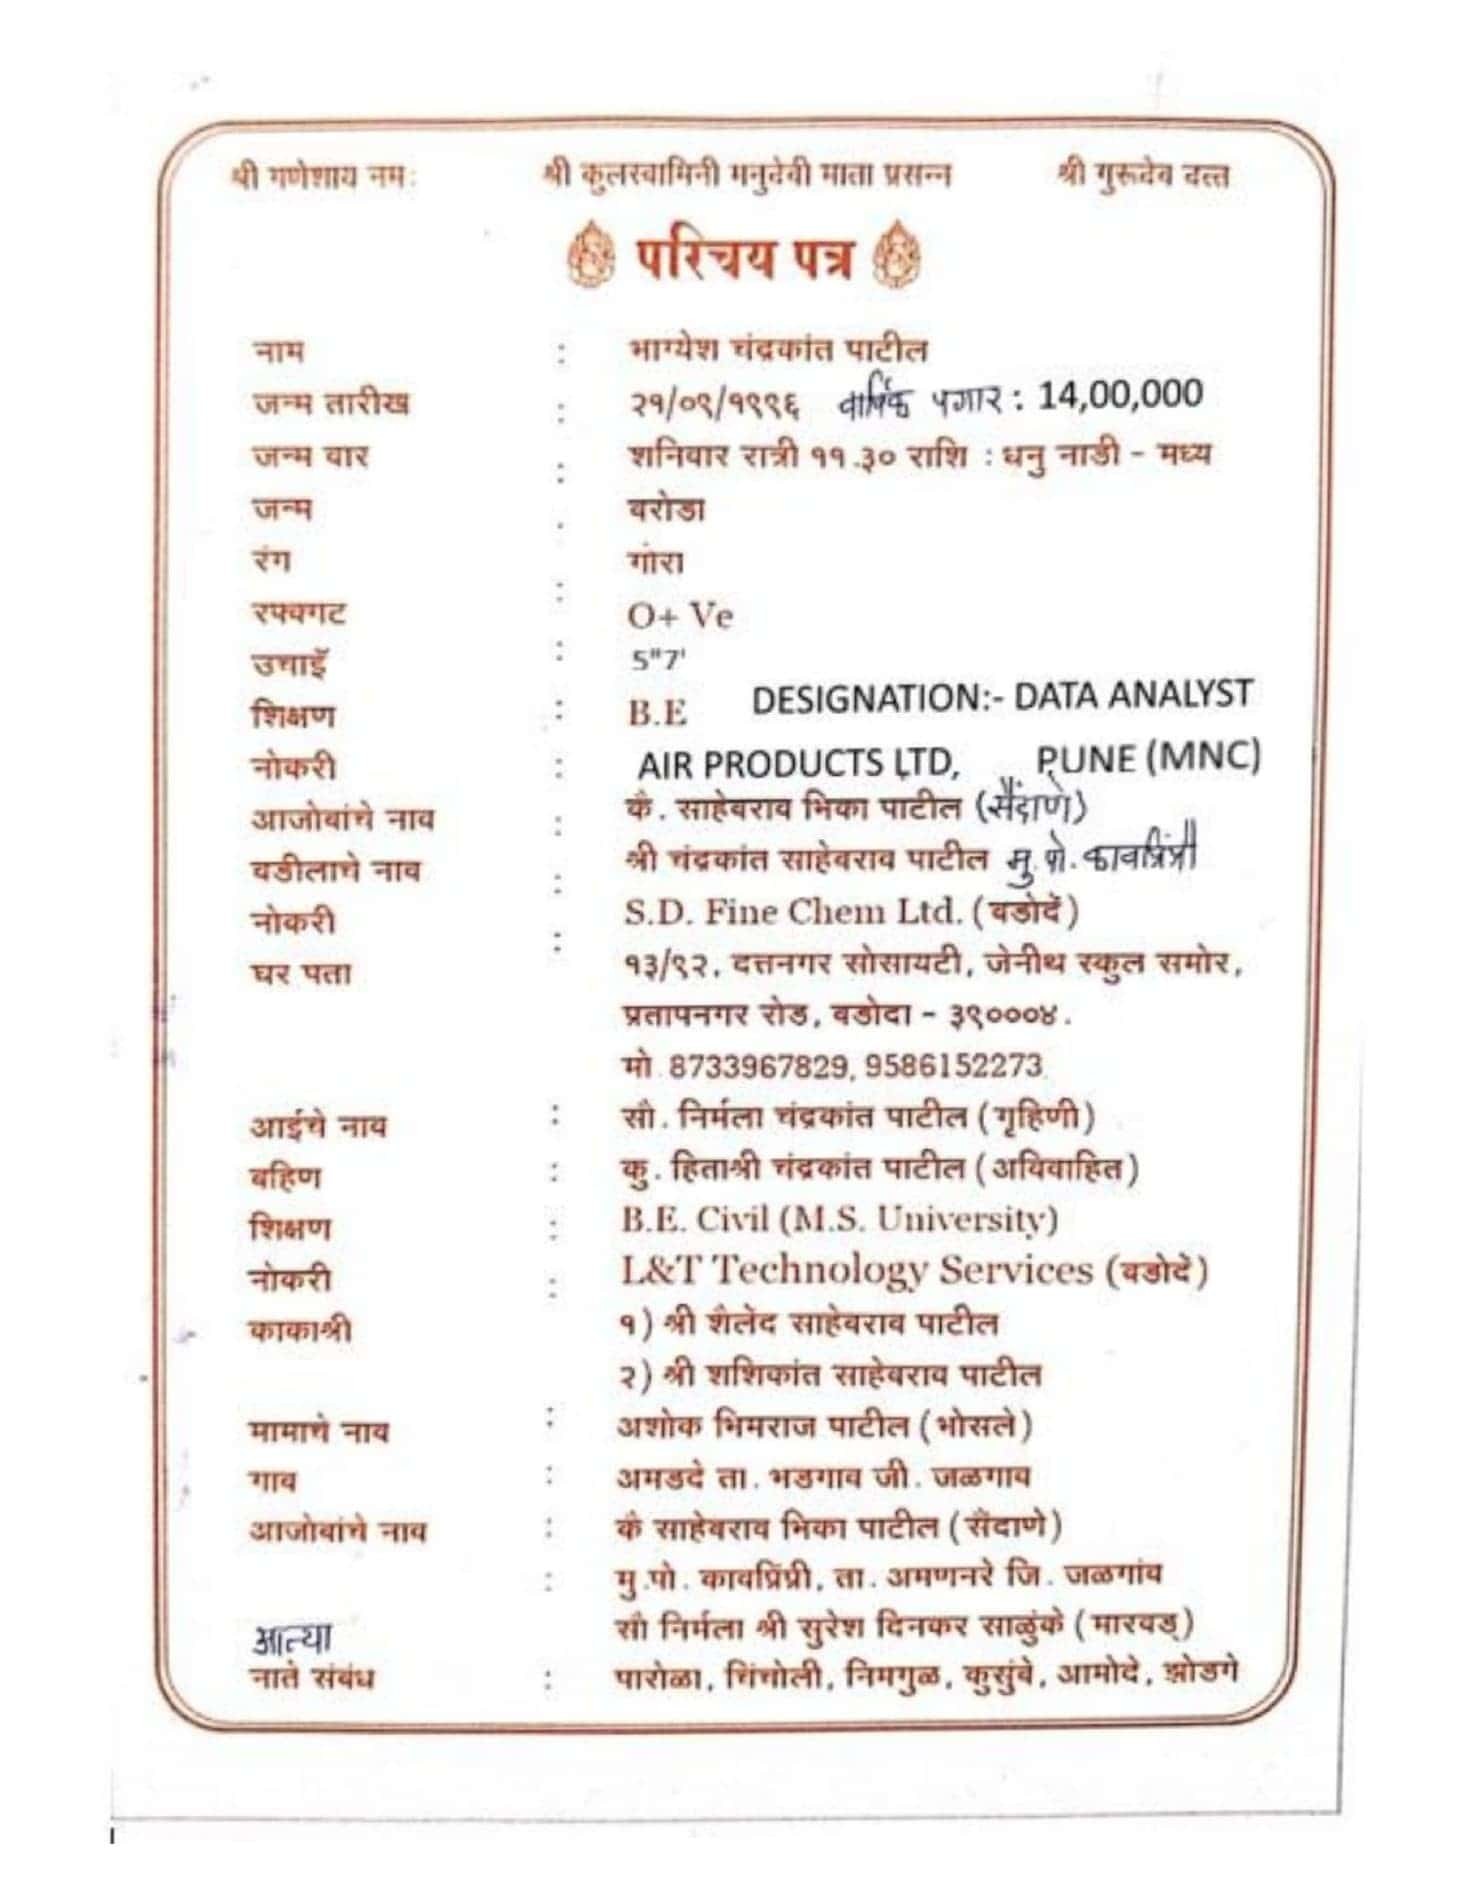 श्री गणेशाय नमः श्री कुलस्वामिनी मनुदेवी माता प्रसन्न श्री गुरूदेव दत्त
परिचय पत्र
नाम : भाग्येश चंद्रकांत पाटील
जन्म तारीख : २१/०९/१९९६ वार्षिक पगार : 14,00,000
जन्म वार : शनिवार रात्री ११.३० राशि : धनु नाडी - मध्य
जन्म : बरोडा
रंग गोरा
रक्वगट : O+ Ve
उचाई : 5"7'
शिक्षण : B.E DESIGNATION:- DATA ANALYST
नोकरी : AIR PRODUCTS LTD, PUNE (MNC)
आजोबांचे नाव : कै. साहेबराव भिका पाटील (सैंदाणे)
वडीलाचे नाव : श्री चंद्रकांत साहेबराव पाटील मु. पो. कावप्रिंप्री
नोकरी : S.D. Fine Chem Ltd. (बडोदें)
घर पता १३/९२, दत्तनगर सोसायटी, जेनीथ स्कुल समोर,
प्रतापनगर रोड, बडोदा - ३९०००४.
मो. 8733967829, 9586152273
आईचे नाव : सौ. निर्मला चंद्रकांत पाटील (गृहिणी)
बहिण : कु. हिताश्री चंद्रकांत पाटील (अविवाहित)
शिक्षण : B.E. Civil (M.S. University)
नोकरी : L&T Technology Services (बडोदें)
काकाश्री १) श्री शैलेंद साहेबराव पाटील
२) श्री शशिकांत साहेबराव पाटील
मामाचे नाव : अशोक भिमराज पाटील (भोसले)
गाव : अमडदे ता. भडगाव जी. जळगाव
आजोबांचे नाव : कै साहेबराव भिका पाटील (सैंदाणे)
: मु.पो. कावप्रिंप्री, ता. अमणनरे जि. जळगांव
आत्या सौ निर्मला श्री सुरेश दिनकर साळुंके (मारवड)
नाते संबंध : पारोळा, चिंचोली, निमगुळ, कुसुंबे, आमोदे, झोडगे